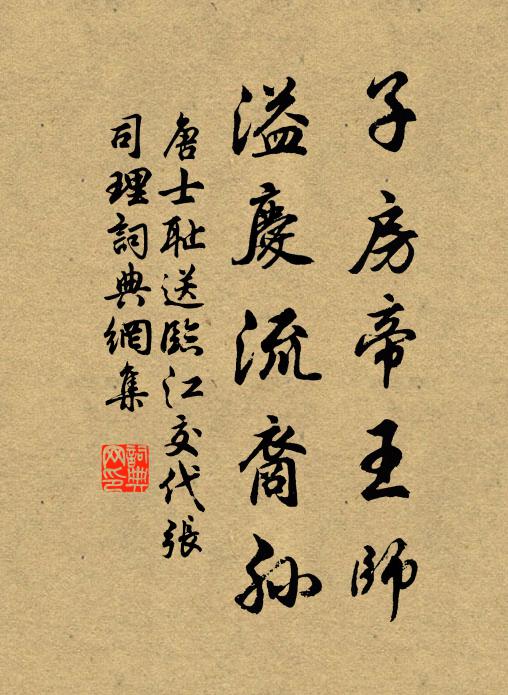 子房帝王師
溢慶流裔孫
唐士耻送臨江交代張
司理詞典網集
詞典网印